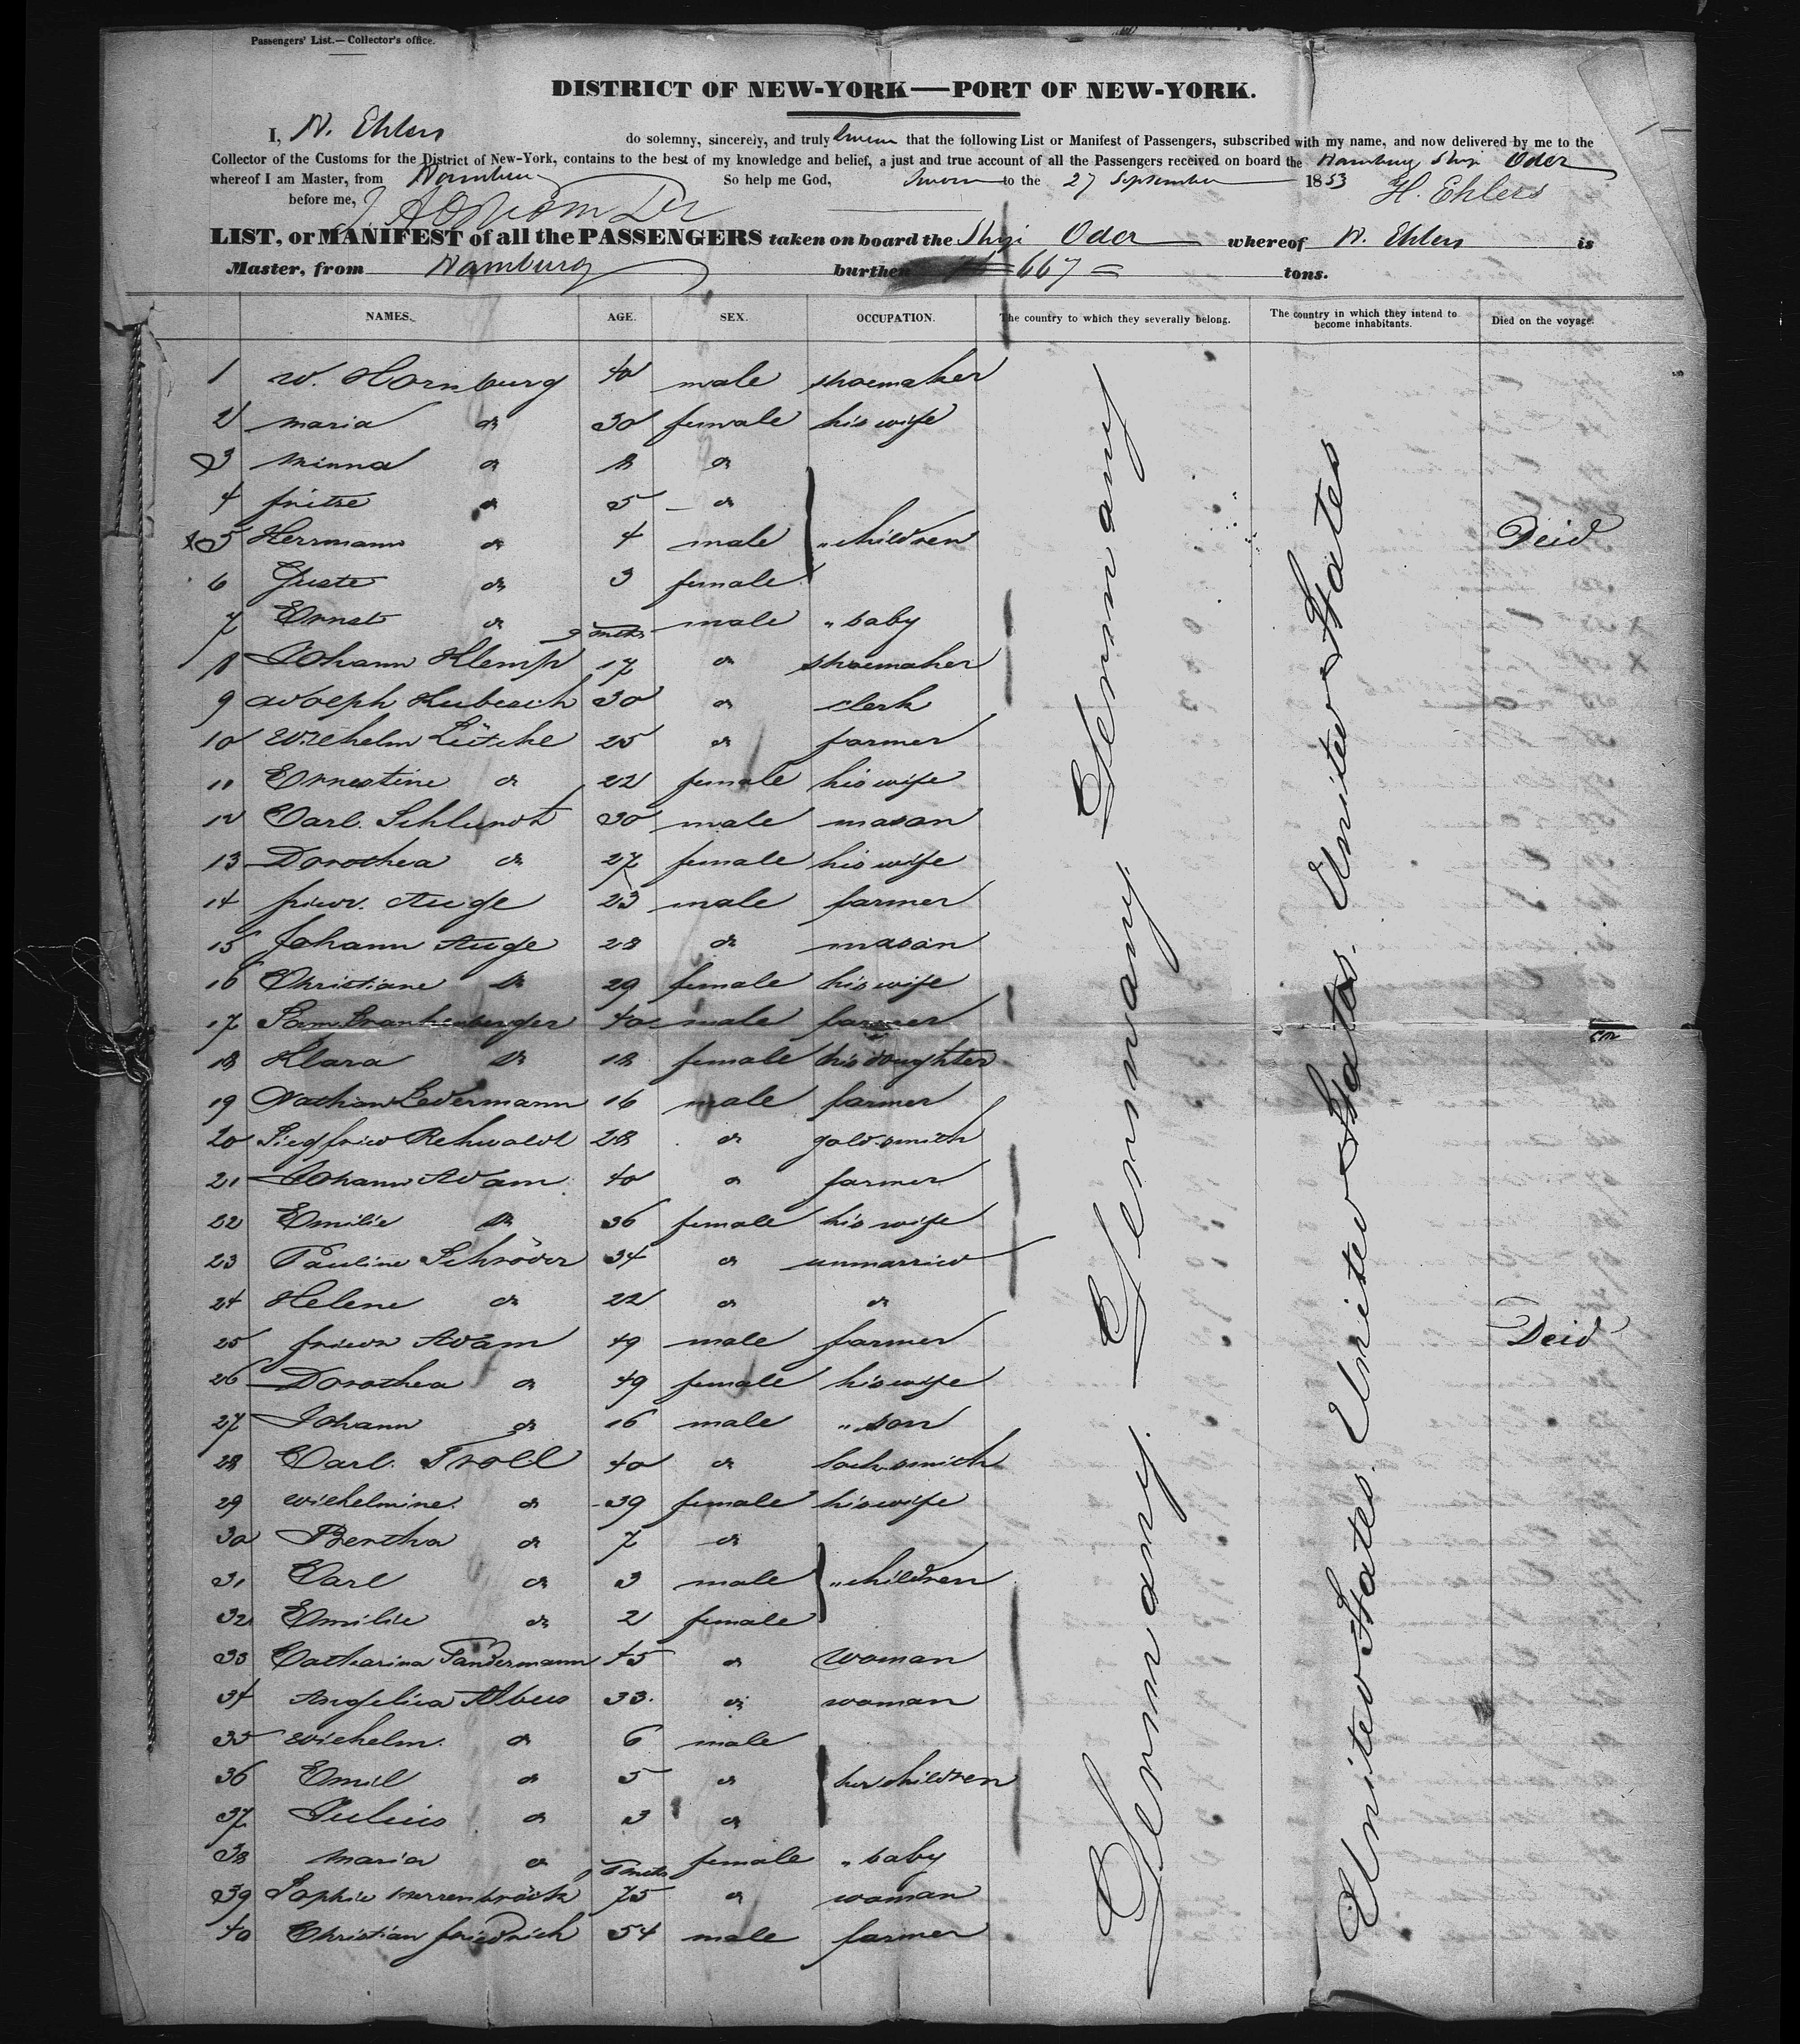 Passengers' List.—Collector's office.
DISTRICT OF NEW-YORK—PORT OF NEW-YORK.
I, H. Ehlers do solemny, sincerely, and truly swear that the following List or Manifest of Passengers, subscribed with my name, and now delivered by me to the
Collector of the Customs for the District of New-York, contains to the best of my knowledge and belief, a just and true account of all the Passengers received on board the Hamburg Ship Oder
whereof I am Master, from Hamburg So help me God, Sworn to the 27 September 1853 H. Ehlers
before me,
LIST, or MANIFEST of all the PASSENGERS taken on board the Ship Oder whereof H. Ehlers is
Master, from Hamburg burthen 667 tons.
NAMES. AGE. SEX. OCCUPATION. The country to which they severally belong. The country in which they intend to become inhabitants. Died on the voyage.
1 W. Hornburg 40 male shoemaker
2 maria do 30 female his wife
3 minna do 8 do
4 fritze do 5 do
5 Herrmann do 4 male " children Deid
6 Guste do 3 female
7 Ernst do 9 mths male " baby
8 Johann Klemp 17 do shoemaker
9 Adolph Hubesch 30 do clerk
10 Wilhelm Lütcke 25 do farmer
11 Ernestine do 22 female his wife
12 Carl. Schlundt 30 male mason
13 Dorothea do 27 female his wife
14 friedr. Auge 23 male farmer
15 Johann Auge 28 do mason
16 Christiane do 29 female his wife
17 Sam. Frankenberger 40 male farmer
18 Klara do 18 female his daughter
19 Nathan Ledermann 16 male farmer
20 Siegfried Rehwaldt 28 do goldsmith
21 Johann Adam 40 do farmer
22 Emilie do 36 female his wife
23 Pauline Schröder 34 do unmarried
24 Helene do 22 do do
25 friedr Adam 49 male farmer Deid
26 Dorothea do 49 female his wife
27 Johann do 16 male " son
28 Carl. Troll 40 do locksmith
29 Wilhelmine do 39 female his wife
30 Bertha do 7 do
31 Carl do 3 male " children
32 Emilie do 2 female
33 Catharina Sandermann 45 do woman
34 Angelica Albus 33. do woman
35 Wilhelm. do 6 male
36 Emil do 5 do her children
37 Julius do 3 do
38 maria do mths female " baby
39 Sophie 75 do woman
40 Christian friedrich 54 male farmer
Germany. Germany. Germany. Germany
United States. United States. United States. United States